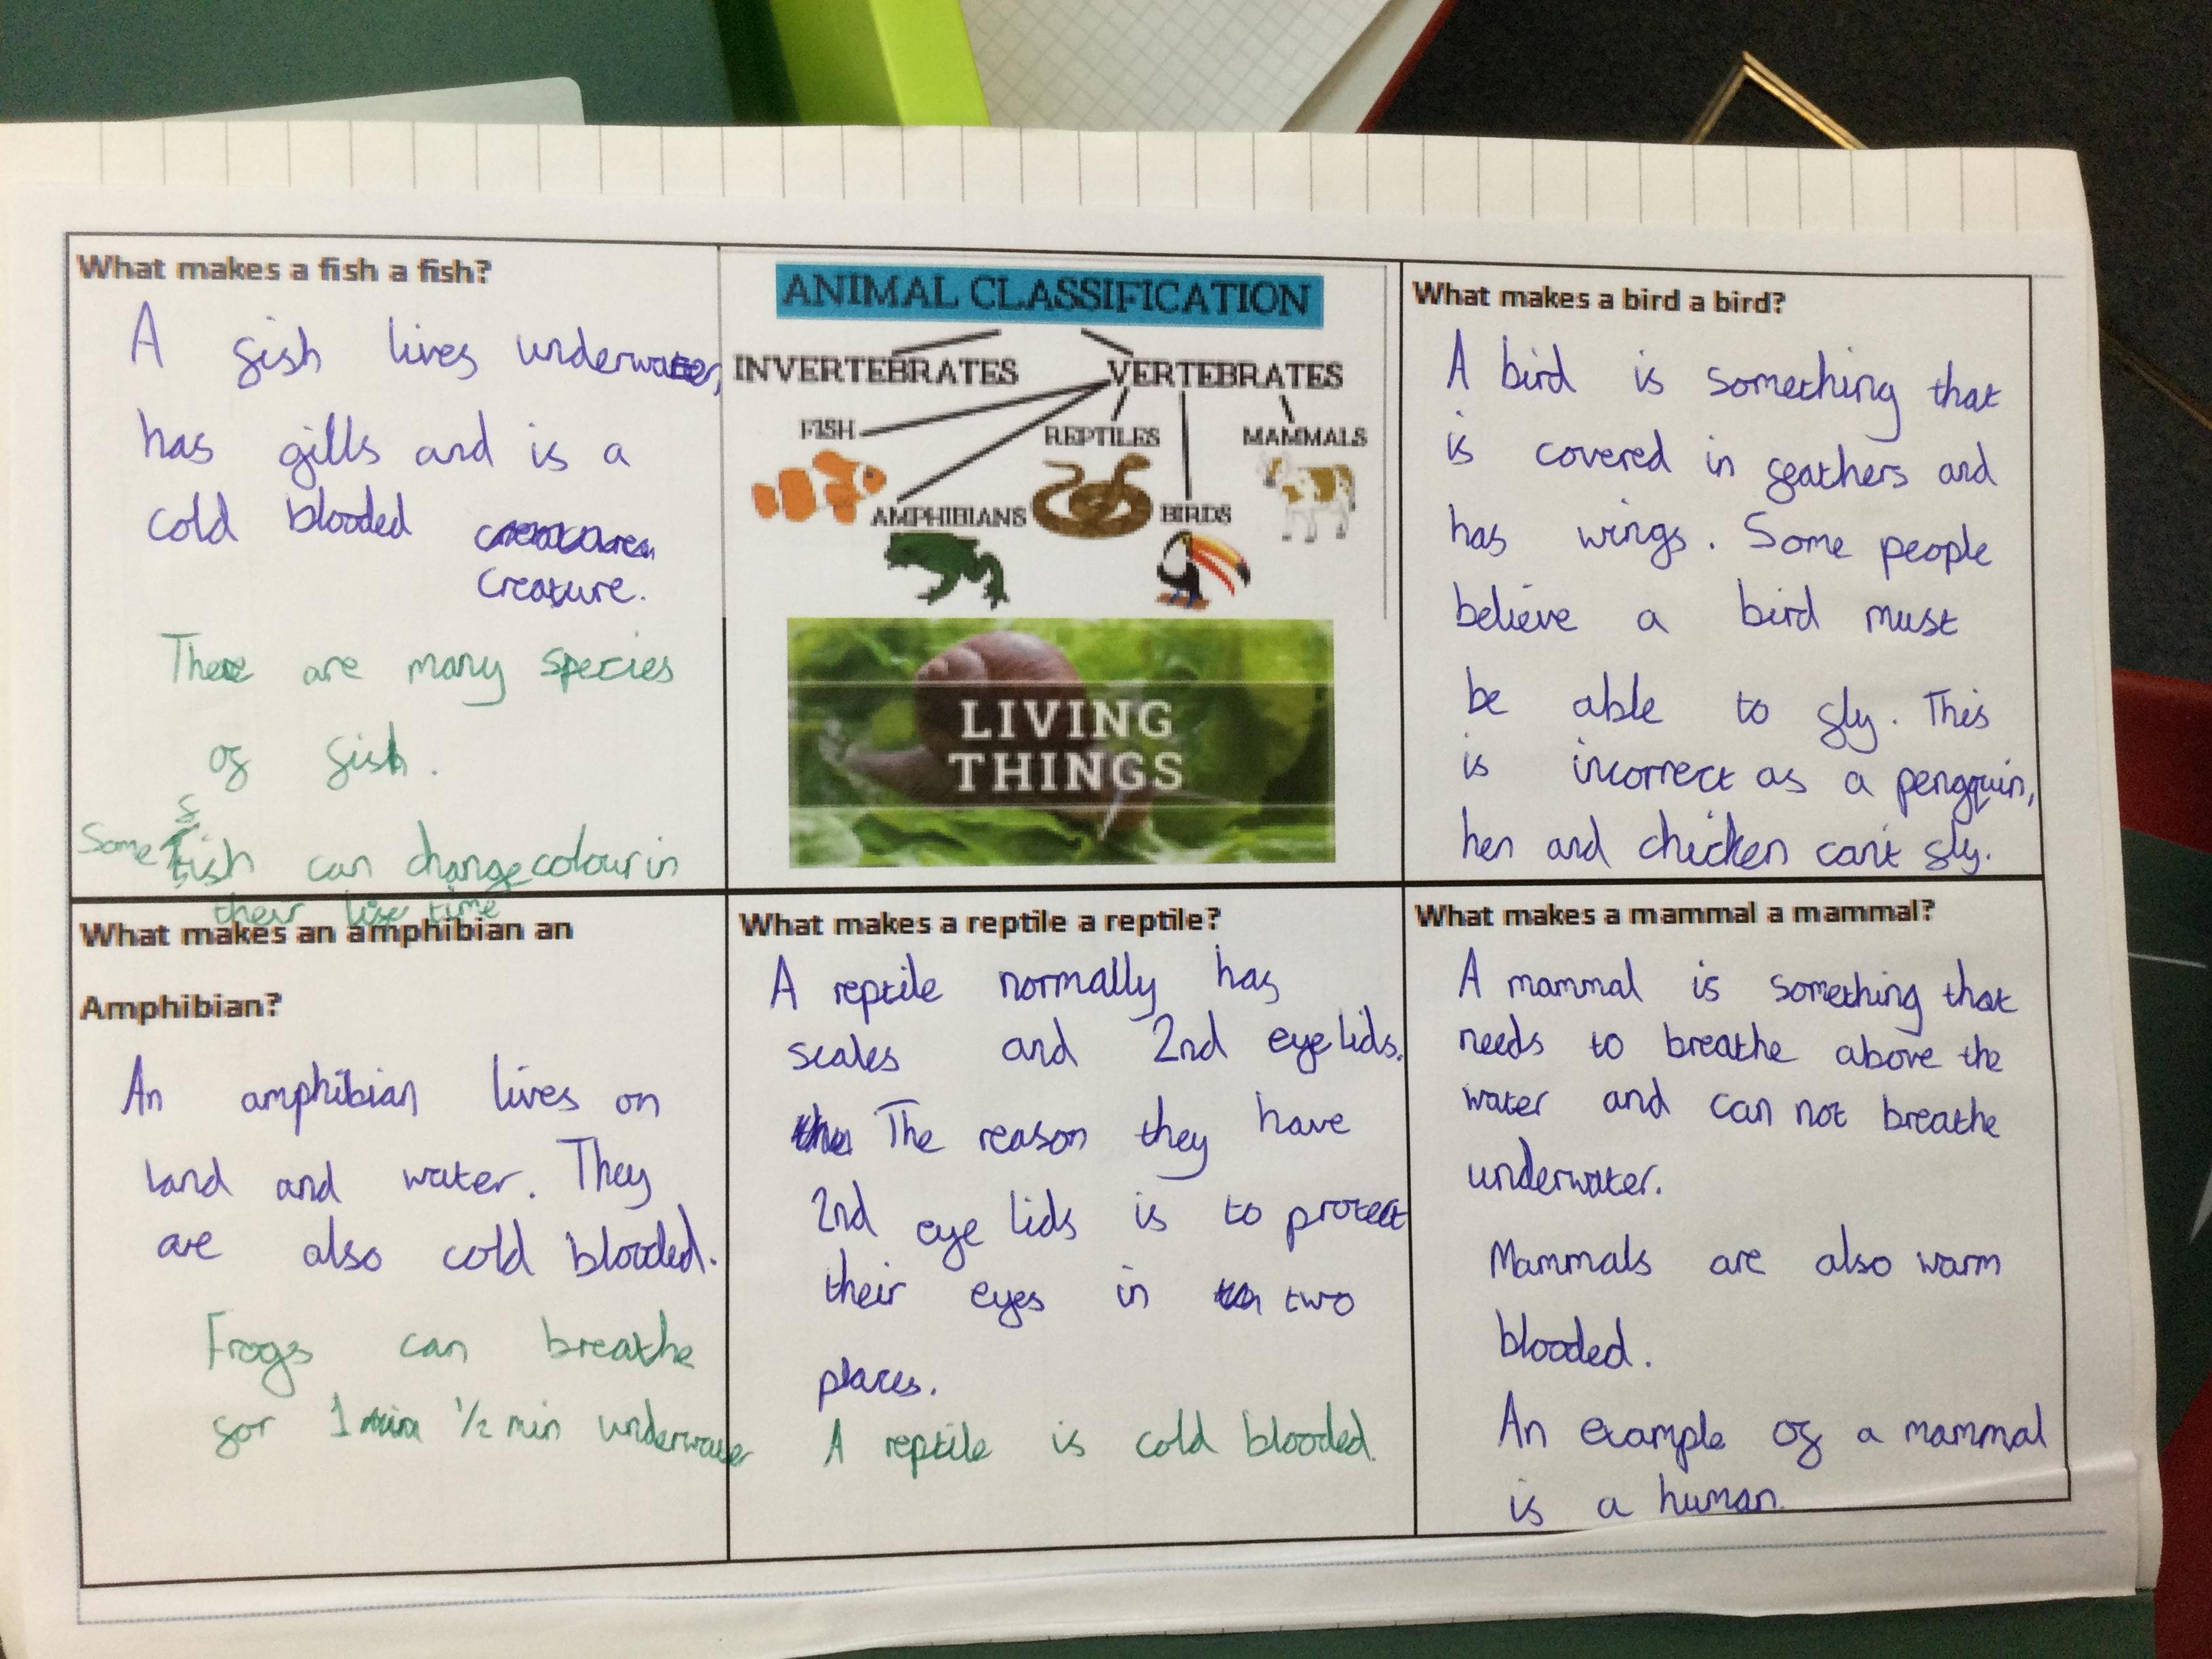 What makes a fish a fish?
A fish lives underwater,
has gills and is a
cold blooded
creature.
There are many species
of fish.
Some fish can change colour in
their life time
ANIMAL CLASSIFICATION
INVERTEBRATES VERTEBRATES
FISH REPTILES MAMMALS
AMPHIBIANS BIRDS
LIVING
THINGS
What makes a bird a bird?
A bird is something that
is covered in feathers and
has wings. Some people
believe a bird must
be able to fly. This
is incorrect as a pengquin,
hen and chicken can't fly.
What makes an amphibian an
Amphibian?
An amphibian lives on
land and water. They
are also cold blooded.
Frogs can breathe
for 1 1/2 min underwater
What makes a reptile a reptile?
A reptile normally has
scales and 2nd eye lids.
The reason they have
2nd eye lids is to protect
their eyes in two
places.
A reptile is cold blooded.
What makes a mammal a mammal?
A mammal is something that
needs to breathe above the
water and can not breathe
underwater.
Mammals are also warm
blooded.
An example of a mammal
is a human.